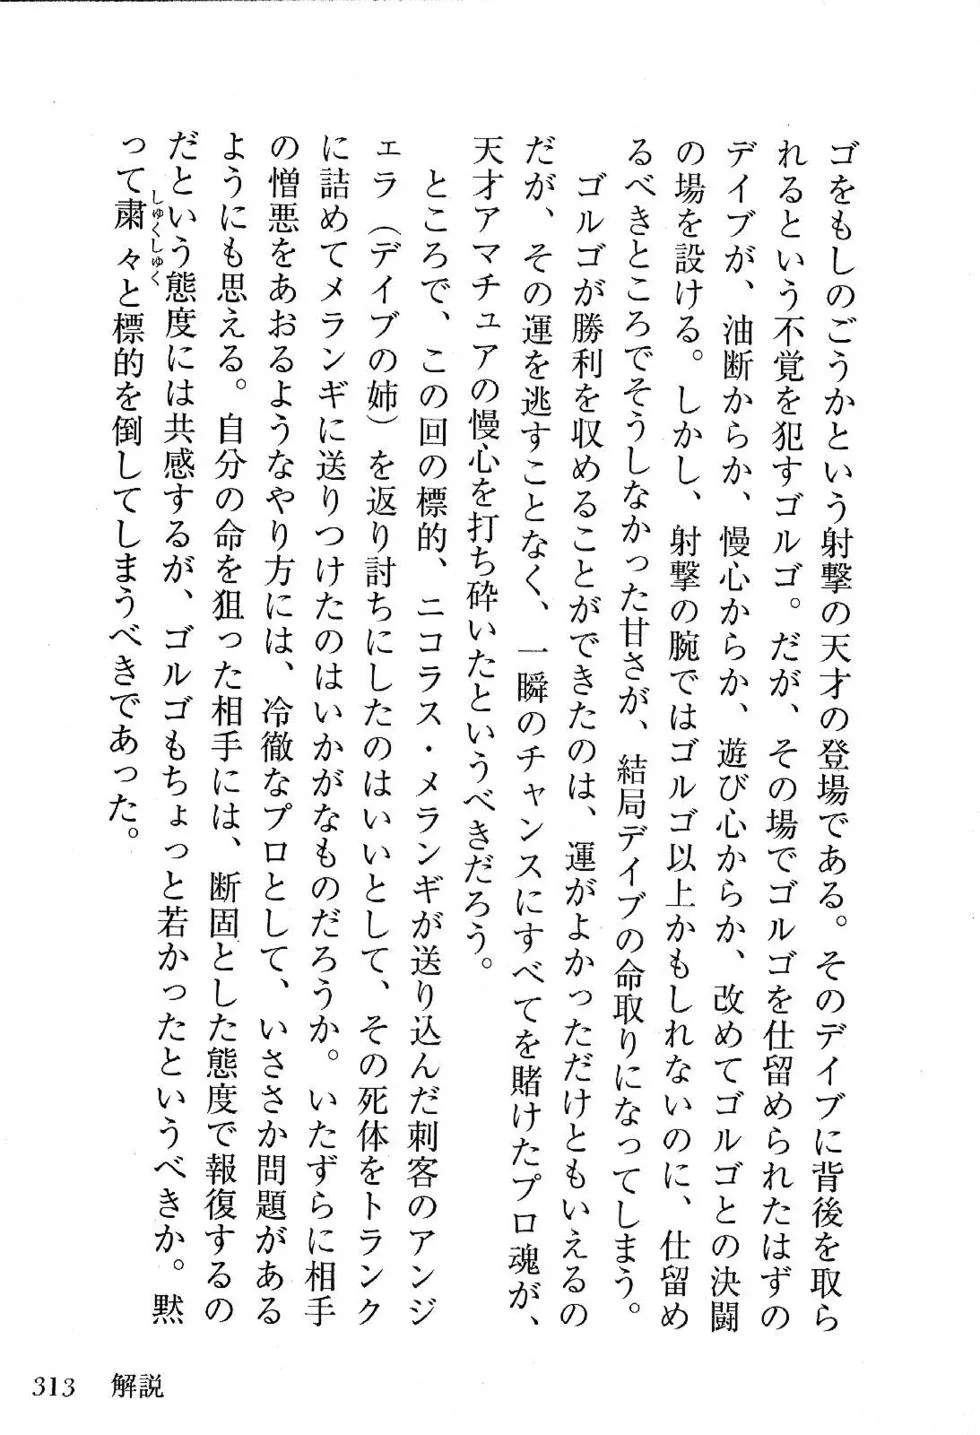 ゴをもしのごうかという射撃の天才の登場である。そのデイブに背後を取ら
れるという不覚を犯すゴルゴ。だが、その場でゴルゴを仕留められたはずの
デイブが、油断からか、慢心からか、遊び心からか、改めてゴルゴとの決闘
の場を設ける。しかし、射撃の腕ではゴルゴ以上かもしれないのに、仕留め
るべきところでそうしなかった甘さが、結局デイブの命取りになってしまう。
ゴルゴが勝利を収めることができたのは、運がよかっただけともいえるの
だが、その運を逃すことなく、一瞬のチャンスにすべてを賭けたプロ魂が、
天才アマチュアの慢心を打ち砕いたというべきだろう。
ところで、この回の標的、ニコラス・メランギが送り込んだ刺客のアンジ
ェラ（デイブの姉）を返り討ちにしたのはいいとして、その死体をトランク
に詰めてメランギに送りつけたのはいかがなものだろうか。いたずらに相手
の憎悪をあおるようなやり方には、冷徹なプロとして、いささか問題がある
ようにも思える。自分の命を狙った相手には、断固とした態度で報復するの
だという態度には共感するが、ゴルゴもちょっと若かったというべきか。黙
しゅくしゅく
って粛々と標的を倒してしまうべきであった。
313 解説